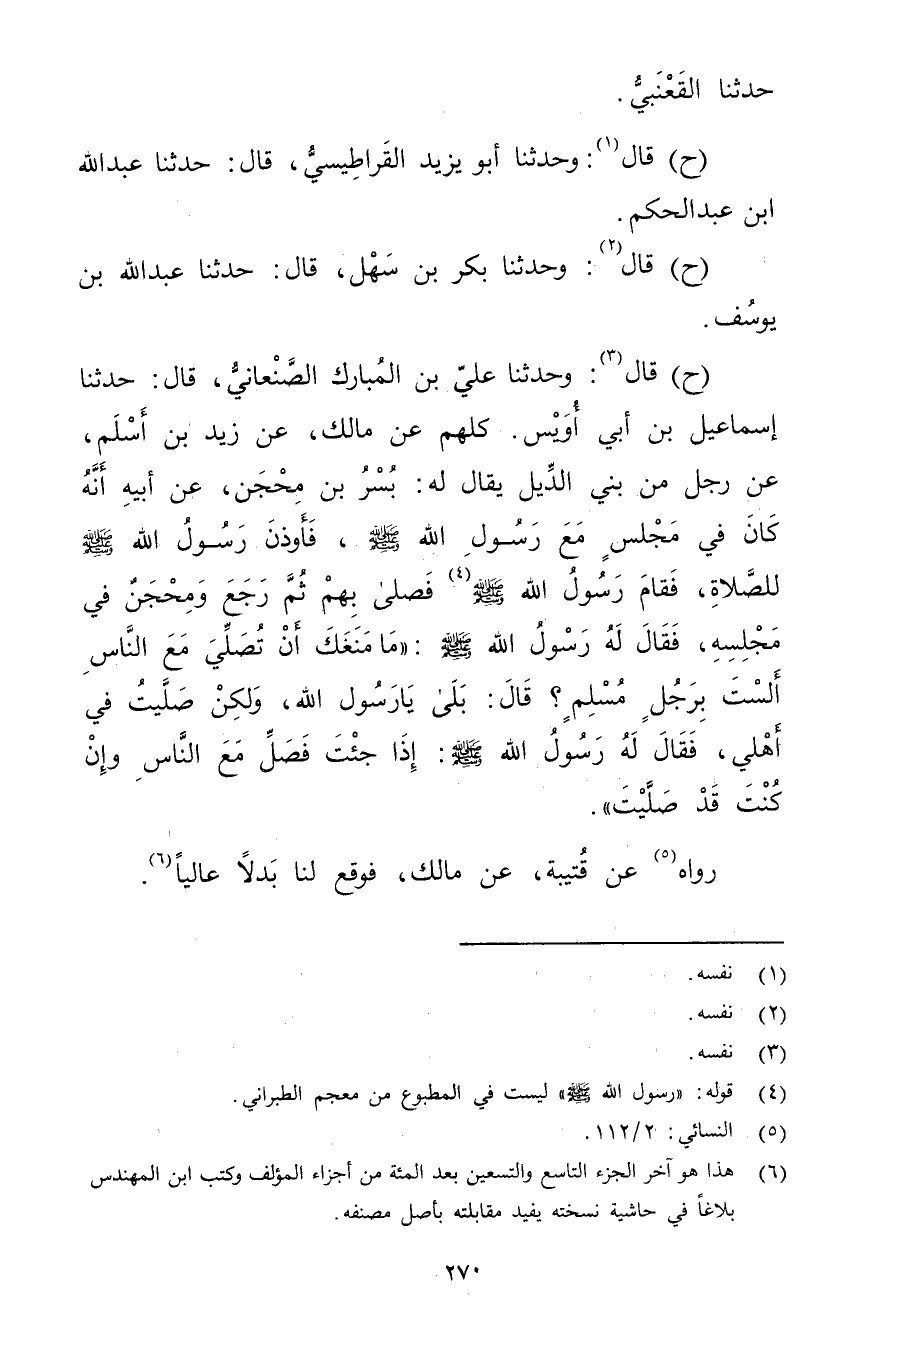 حدثنا القَعْنَبيُّ .
(ح) قال(١): وحدثنا أبو يزيد القَراطِيسيُّ، قال: حدثنا عبدالله
ابن عبدالحكم .
(ح) قال(٢): وحدثنا بكر بن سَهْل، قال: حدثنا عبدالله بن
يوسُف .
(ح) قال(٣): وحدثنا عليّ بن المُبارك الصَّنْعانيُّ، قال: حدثنا
إسماعيل بن أبي أُوَيْس. كلهم عن مالك، عن زيد بن أَسْلَم،
عن رجل من بني الدِّيل يقال له: بُسْرُ بن مِحْجَن، عن أبيهِ أَنَّهُ
كَانَ في مَجْلسٍ مَعَ رَسُولِ الله ﷺ ، فَأُوذنَ رَسُولُ الله ﷺ
للصَّلاةِ، فَقامَ رَسُولُ الله ﷺ(٤) فَصلىٰ بِهِمْ ثُمَّ رَجَعَ وَمِحْجَنٌ في
مَجْلِسِهِ، فَقَالَ لَهُ رَسْولُ الله ﷺ : «مَا مَنَعَكَ أَنْ تُصَلِّيَ مَعَ النَّاسِ
أَلسْتَ بِرَجُلٍ مُسْلِمٍ؟ قَالَ: بَلَىٰ يَارَسُول الله، وَلكِنْ صَلَّيتُ في
أَهْلي، فَقَالَ لَهُ رَسُولُ الله ﷺ: إِذَا جئْتَ فَصَلِّ مَعَ النَّاسِ وإِنْ
كُنْتَ قَدْ صَلَّيْتَ».
رواه(٥) عن قُتيبة، عن مالك، فوقع لنا بَدلًا عالياً(٦).
(١) نفسه .
(٢) نفسه .
(٣) نفسه .
(٤) قوله: «رسول الله ﷺ» ليست في المطبوع من معجم الطبراني .
(٥) النسائي: ١١٢/٢ .
(٦) هذا هو آخر الجزء التاسع والتسعين بعد المئة من أجزاء المؤلف وكتب ابن المهندس
بلاغاً في حاشية نسخته يفيد مقابلته بأصل مصنفه .
٢٧٠